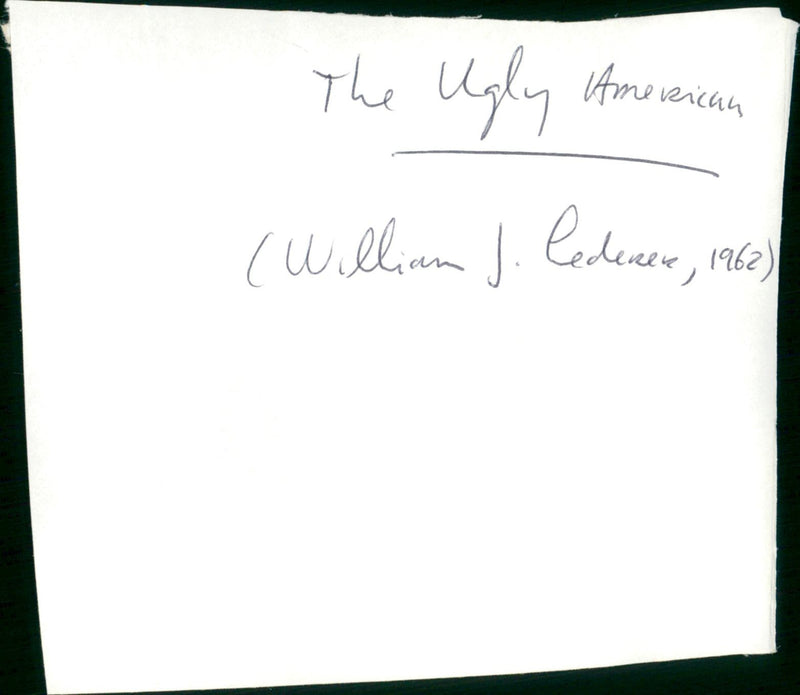 The Ugly American
(William J. Lederer, 1962)